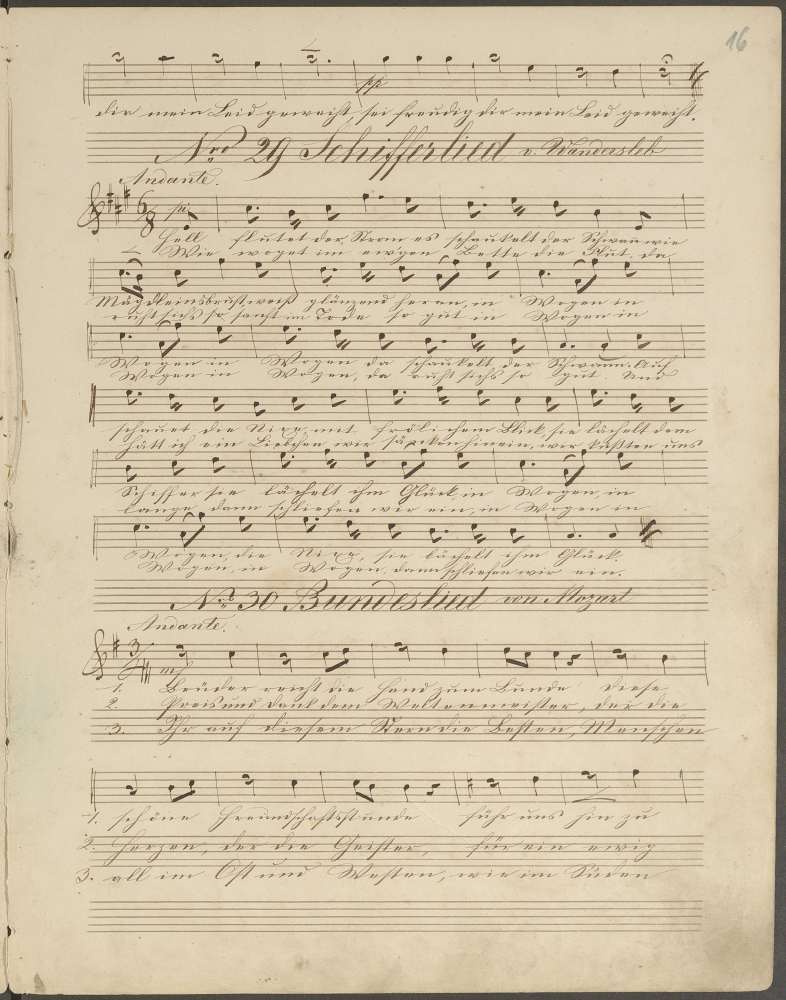 16
pp
dir mein Leid geweiht, sei freudig dir mein Leid geweiht.
Nro 29 Schifferlied v. Wandersleb
Andante.
6/8 p
Hell flutet der Strom es schaukelt der Schwan wie
Wie woget im ewgen Bette die Flut, da
Mägdleinsbrust weiß glänzend heran, in Wogen in
ruht sichs so sanft im Tode so gut in Wogen in
Wogen in Wogen da schaukelt der Schwan. Auch
Wogen in Wogen, da ruht sichs so gut. Und
schauet die Nixe mit frölichem Blick, sie lächelt dem
hätt ich ein Liebchen wir sänken hinein, wir küßten uns
Schiffer sie lächelt ihm Glück, in Wogen, in
lange dann schliefen wir ein, in Wogen in
Wogen, die Nixe, sie lächelt ihm Glück.
Wogen, in Wogen, dann schliefen wir ein.
No 30 Bundeslied von Mozart
Andante.
3/4 mf
1. Brüder reicht die Hand zum Bunde diese
2. Preis und Dank dem Weltenmeister, der die
3. Ihr auf diesem Stern die Besten, Menschen
1. schöne Freundschaftsstunde führ uns hin zu
2. Herzen, der die Geister, für ein ewig
3. all im Ost und Westen, wie im Süden